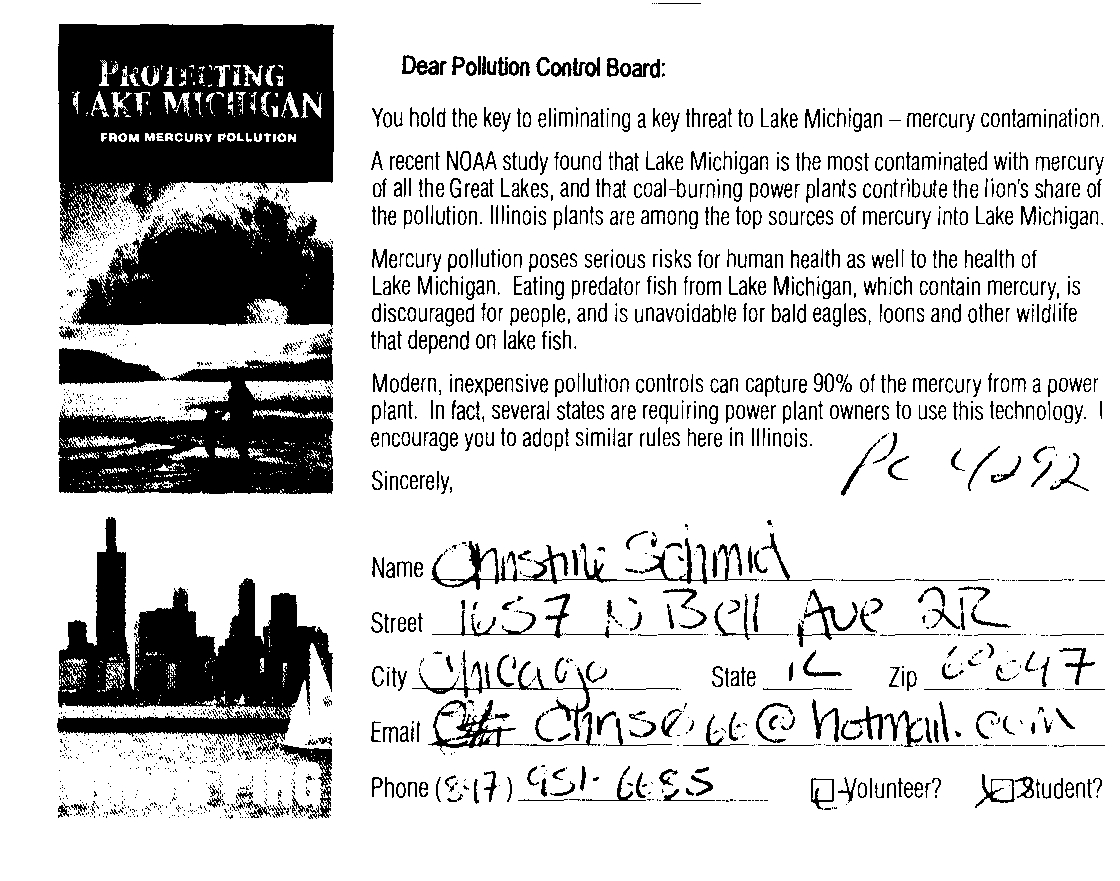 PROTECTING
LAKE MICHIGAN
FROM MERCURY POLLUTION
Dear Pollution Control Board:
You hold the key to eliminating a key threat to Lake Michigan – mercury contamination.
A recent NOAA study found that Lake Michigan is the most contaminated with mercury
of all the Great Lakes, and that coal-burning power plants contribute the lion's share of
the pollution. Illinois plants are among the top sources of mercury into Lake Michigan.
Mercury pollution poses serious risks for human health as well to the health of
Lake Michigan. Eating predator fish from Lake Michigan, which contain mercury, is
discouraged for people, and is unavoidable for bald eagles, loons and other wildlife
that depend on lake fish.
Modern, inexpensive pollution controls can capture 90% of the mercury from a power
plant. In fact, several states are requiring power plant owners to use this technology. I
encourage you to adopt similar rules here in Illinois.
PC 4292
Sincerely,
Name Christine Schmid
Street 1657 N Bell Ave 2R
City Chicago State IL Zip 60647
Email @hotmail.com
Phone (847) 951-6685 Volunteer? Student?